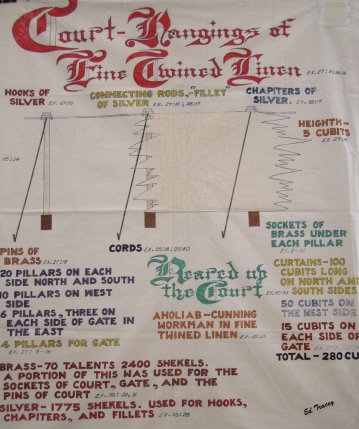 Court-Hangings of
Fine Twined Linen
HOOKS OF
SILVER
CONNECTING RODS,-"FILLET"
OF SILVER
CHAPITERS OF
SILVER.
HEIGHTH-
5 CUBITS
PINS OF
BRASS
CORDS
SOCKETS OF
BRASS UNDER
EACH PILLAR
20 PILLARS ON EACH
SIDE NORTH AND SOUTH
10 PILLARS ON WEST
SIDE
6 PILLARS, THREE ON
EACH SIDE OF GATE IN
THE EAST
4 PILLARS FOR GATE
Reared up
the Court
AHOLIAB-CUNNING
WORKMAN IN FINE
TWINED LINEN
CURTAINS-100
CUBITS LONG
ON NORTH AN
SOUTH SIDES
50 CUBITS ON
THE WEST SIDE
15 CUBITS ON
EACH SIDE OF
GATE
TOTAL-280 CU
BRASS-70 TALENTS 2400 SHEKELS.
A PORTION OF THIS WAS USED FOR THE
SOCKETS OF COURT, GATE, AND THE
PINS OF COURT
SILVER-1775 SHEKELS. USED FOR HOOKS,
CHAPITERS, AND FILLETS
Ed Tracey